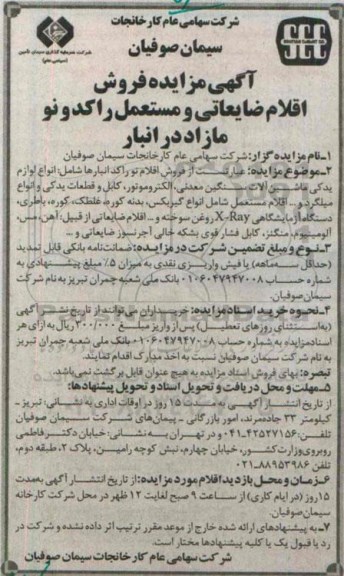 شرکت سهامی عام کارخانجات
سیمان صوفیان
آگهی مزایده فروش
اقلام ضایعاتی و مستعمل راکد و نو
مازاد در انبار
۱-نام مزایده گزار: شرکت سهامی عام کارخانجات سیمان صوفیان
۲-موضوع مزایده: عبارتست از فروش اقلام نو راکد انبارها شامل: انواع لوازم
یدکی ماشین آلات سنگین معدنی، الکتروموتور، کابل و قطعات یدکی و انواع
میلگرد و ... اقلام مستعمل شامل انواع گیربکس، بدنه کوره، غلطک، کوره، باطری،
دستگاه آزمایشگاهی X-Ray روغن سوخته و ... اقلام ضایعاتی از قبیل: آهن، مس،
آلومینیوم، منگنز، کابل فشار قوی بشکه خالی آجر نسوز ضایعاتی و ...
۳-نوع و مبلغ تضمین شرکت در مزایده: ضمانت نامه بانکی قابل تمدید
(حداقل سه ماهه) یا فیش واریزی نقدی به میزان ۵٪ مبلغ پیشنهادی به
شماره حساب ۰۱۰۶۰۴۷۹۴۷۰۰۸ بانک ملی شعبه چمران تبریز به نام شرکت
سیمان صوفیان.
۴-نحوه خرید اسناد مزایده: خریداران می توانند از تاریخ نشر آگهی
(به استثنای روزهای تعطیل) پس از واریز مبلغ ۳۰۰/۰۰۰ ریال به ازای هر
اسناد مزایده به شماره حساب ۰۱۰۶۰۴۷۹۴۷۰۰۸ بانک ملی شعبه چمران تبریز
به نام شرکت سیمان صوفیان نسبت به اخذ مدارک اقدام نمایند.
تبصره: بهای فروش اسناد مزایده به هیچ عنوان قابل برگشت نمی باشد.
۵-مهلت و محل دریافت و تحویل اسناد و تحویل پیشنهادها:
از تاریخ انتشار آگهی به مدت ۱۵ روز در اوقات اداری به نشانی: تبریز -
کیلومتر ۳۳ جاده مرند، امور بازرگانی - پیمان های شرکت سیمان صوفیان
تلفن: ۴۲۵۲۷۱۵۶-۰۴۱ و در تهران به نشانی: خیابان دکتر فاطمی
روبروی وزارت کشور، خیابان چهارم، نبش کوچه رامین، پلاک ۲، طبقه دوم،
تلفن ۸۸۹۵۳۹۸۶-۰۲۱
۶-زمان و محل بازدید اقلام مورد مزایده: از تاریخ انتشار آگهی بعمدت
۱۵ روز (در ایام کاری) از ساعت ۹ صبح لغایت ۱۲ ظهر در محل شرکت کارخانه
سیمان صوفیان.
۷- به پیشنهادهای ارائه شده خارج از موعد مقرر ترتیب اثر داده نشده و شرکت در
رد یا قبول یک یا کلیه پیشنهادها مختار است.
شرکت سهامی عام کارخانجات سیمان صوفیان